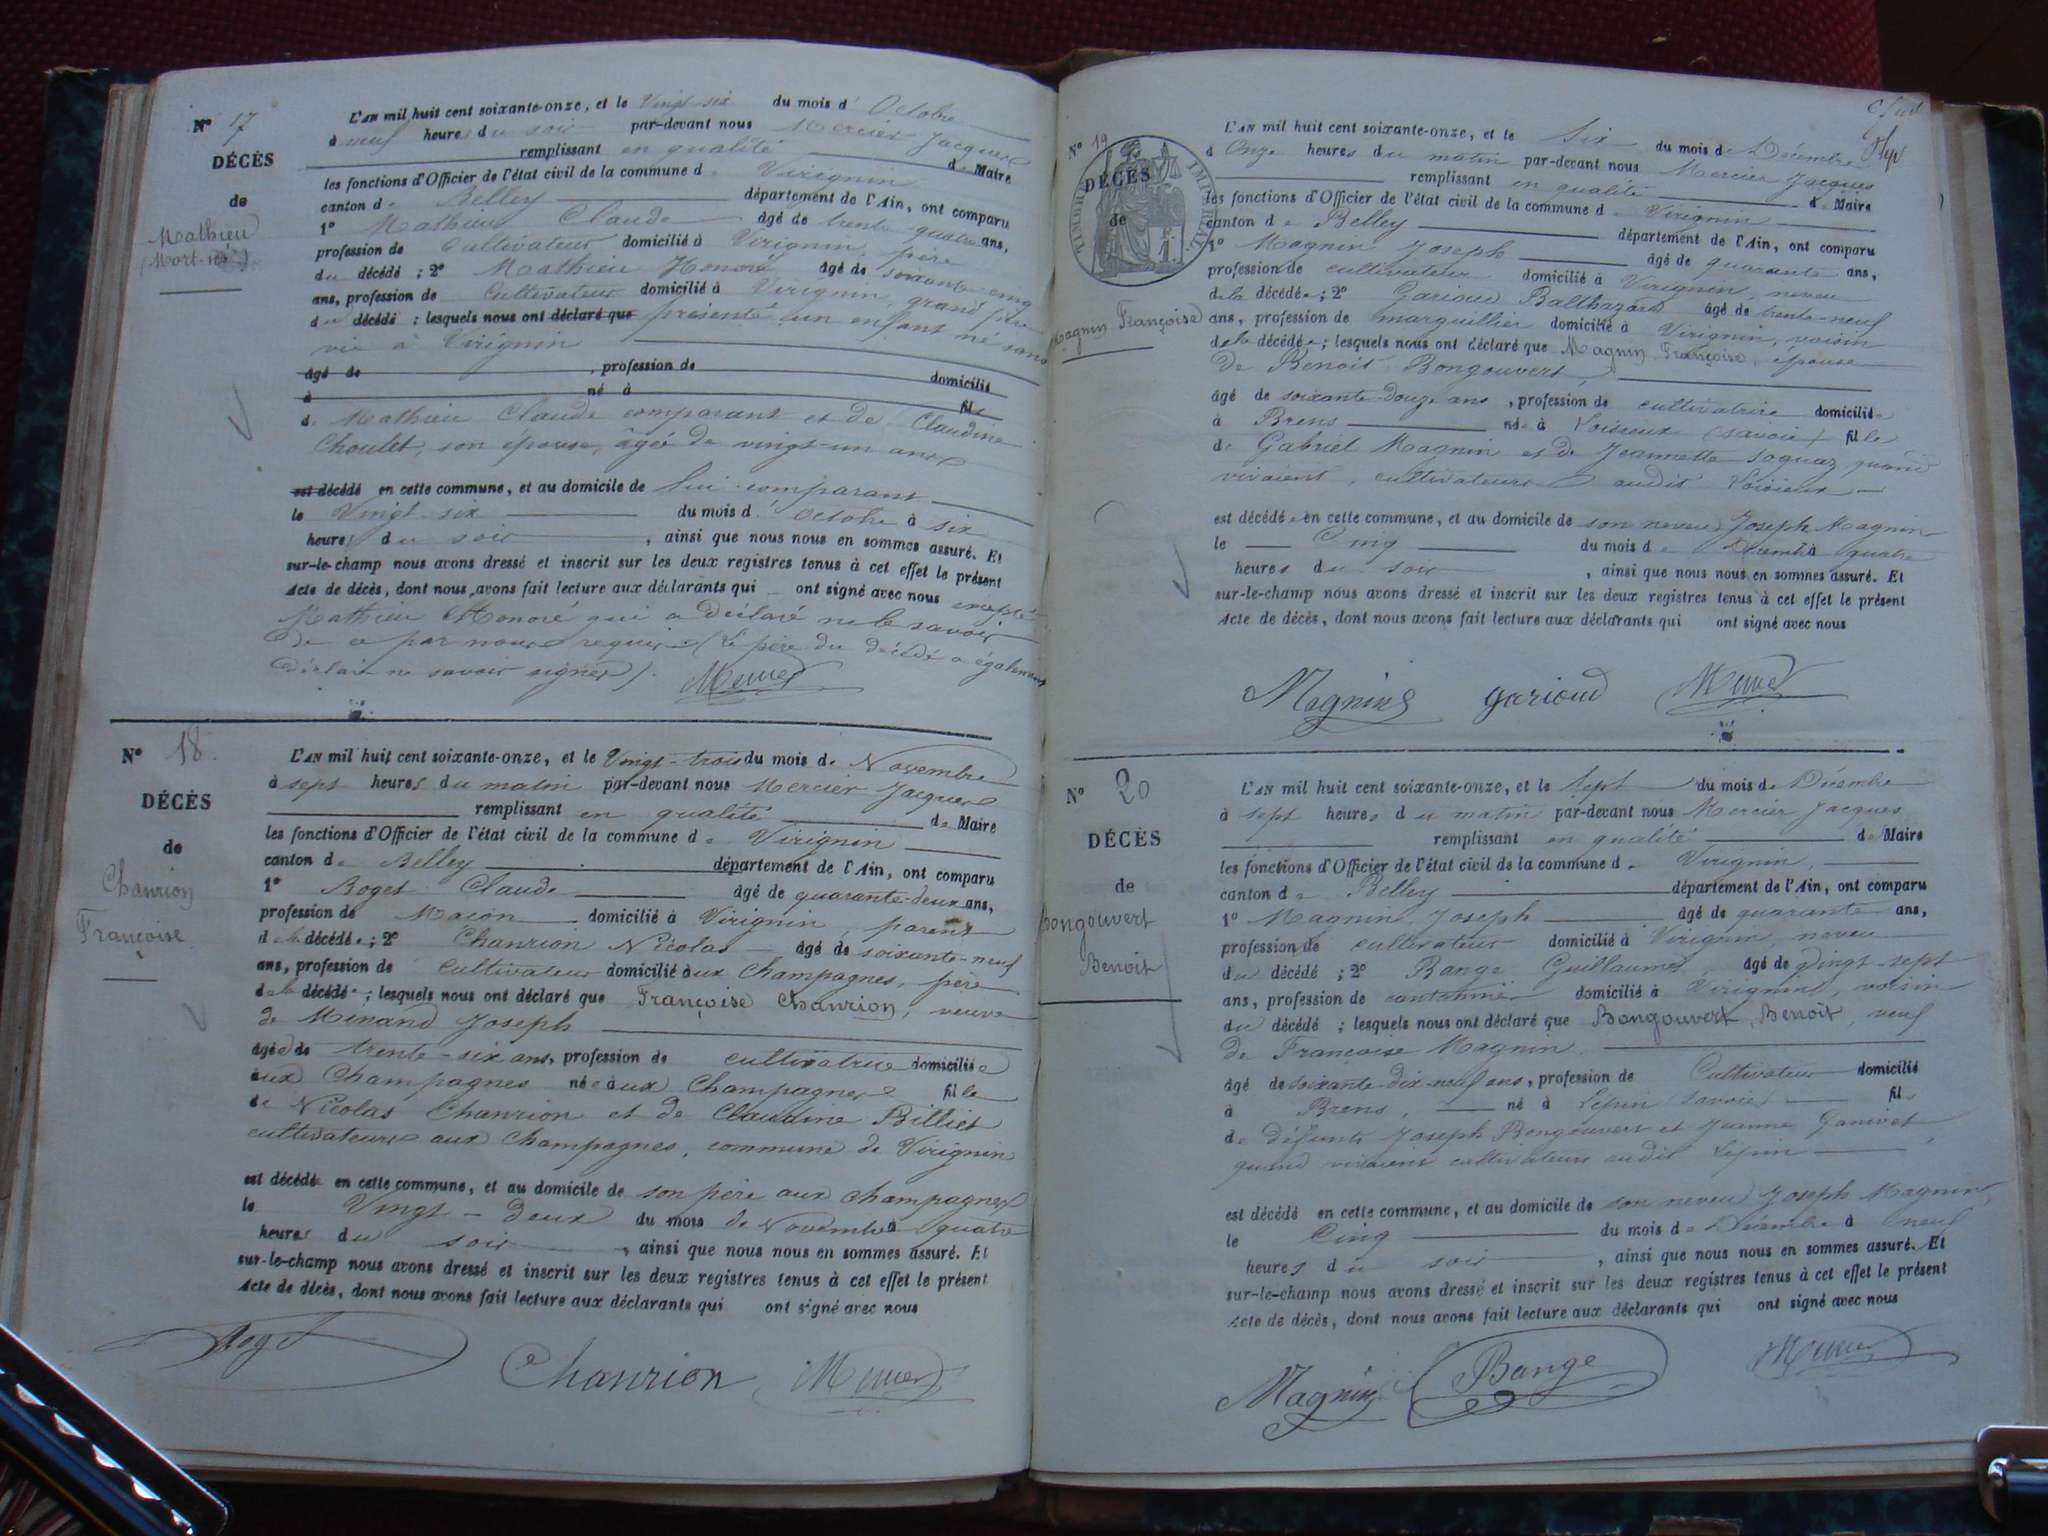 N° 17
DÉCÈS
de
Mathieu
(Mort-né)
L'AN mil huit cent soixante-onze, et le Vingt-six du mois d'Octobre
à neuf heures du soir par-devant nous Mercier Jacques
remplissant en qualité de Maire
les fonctions d'Officier de l'état civil de la commune de Virignin
canton de Belley département de l'Ain, ont comparu
1° Mathieu Claude âgé de trente quatre ans,
profession de Cultivateur domicilié à Virignin, père
du décédé ; 2° Mathieu Honoré âgé de soixante-cinq
ans, profession de Cultivateur domicilié à Virignin, grand père
du décédé ; lesquels nous ont déclaré que présenté un enfant né sans
vie à Virignin
âgé de , profession de domicilié
à né à fils
de Mathieu Claude comparant et de Claudine
Choulet, son épouse, âgée de vingt-un ans
est décédé en cette commune, et au domicile de lui comparant
le Vingt-six du mois d'Octobre à six
heures du soir , ainsi que nous nous en sommes assuré. Et
sur-le-champ nous avons dressé et inscrit sur les deux registres tenus à cet effet le présent
Acte de décès, dont nous avons fait lecture aux déclarants qui ont signé avec nous excepté
Mathieu Honoré qui a déclaré ne le savoir
de ce par nous requis (Le père du décédé a également
déclaré ne savoir signer).
Mercier
N° 18.
DÉCÈS
de
Chanrion
Françoise
L'AN mil huit cent soixante-onze, et le Vingt-trois du mois de Novembre
à sept heures du matin par-devant nous Mercier Jacques
remplissant en qualité de Maire
les fonctions d'Officier de l'état civil de la commune de Virignin
canton de Belley département de l'Ain, ont comparu
1° Roget Claude âgé de quarante-deux ans,
profession de Maçon domicilié à Virignin, parent
de la décédée ; 2° Chanrion Nicolas âgé de soixante-neuf
ans, profession de Cultivateur domicilié aux Champagnes, père
de la décédée ; lesquels nous ont déclaré que Françoise Chanrion, veuve
de Minand Joseph
âgée de trente-six ans, profession de cultivatrice domiciliée
aux Champagnes née aux Champagnes fille
de Nicolas Chanrion et de Claudine Billiet
cultivateurs aux Champagnes, commune de Virignin
est décédée en cette commune, et au domicile de son père aux Champagnes
le Vingt-deux du mois de Novembre à quatre
heures du soir , ainsi que nous nous en sommes assuré. Et
sur-le-champ nous avons dressé et inscrit sur les deux registres tenus à cet effet le présent
Acte de décès, dont nous avons fait lecture aux déclarants qui ont signé avec nous
Roget Chanrion Mercier
N° 19
DÉCÈS
de
TIMBRE IMPÉRIAL
Magnin Françoise
L'AN mil huit cent soixante-onze, et le Six du mois de Décembre
à Onze heures du matin par-devant nous Mercier Jacques
remplissant en qualité de Maire
les fonctions d'Officier de l'état civil de la commune de Virignin
canton de Belley département de l'Ain, ont comparu
1° Magnin Joseph âgé de quarante ans,
profession de cultivateur domicilié à Virignin, neveu
de la décédée ; 2° Garioud Balthazard âgé de trente-neuf
ans, profession de marguillier domicilié à Virignin, voisin
de la décédée ; lesquels nous ont déclaré que Magnin Françoise, épouse
de Benoît Bongouvert
âgé de soixante-douze ans, profession de cultivatrice domiciliée
à Brens née à Loisieux (Savoie) fille
de Gabriel Magnin et de Jeannette Soguaz, quand
vivaient, cultivateurs audit Loisieux
est décédée en cette commune, et au domicile de son neveu Joseph Magnin
le Cinq du mois de Décembre à quatre
heures du soir , ainsi que nous nous en sommes assuré. Et
sur-le-champ nous avons dressé et inscrit sur les deux registres tenus à cet effet le présent
Acte de décès, dont nous avons fait lecture aux déclarants qui ont signé avec nous
Magnin garioud Mercier
N° 20
DÉCÈS
de
Bongouvert
Benoît
L'AN mil huit cent soixante-onze, et le Sept du mois de Décembre
à sept heures du matin par-devant nous Mercier Jacques
remplissant en qualité de Maire
les fonctions d'Officier de l'état civil de la commune de Virignin,
canton de Belley département de l'Ain, ont comparu
1° Magnin Joseph âgé de quarante ans,
profession de cultivateur domicilié à Virignin, neveu
du décédé ; 2° Bange Guillaume, âgé de vingt-sept
ans, profession de cantonnier domicilié à Virignin, voisin
du décédé ; lesquels nous ont déclaré que Bongouvert, Benoît, veuf
de Françoise Magnin
âgé de soixante dix-neuf ans, profession de Cultivateur domicilié
à Brens, né à Lépin (Savoie) fils
de défunts Joseph Bongouvert et Jeanne Ganivet,
quand vivaient cultivateurs audit Lépin
est décédé en cette commune, et au domicile de son neveu Joseph Magnin,
le Cinq du mois de Décembre à neuf
heures du soir , ainsi que nous nous en sommes assuré. Et
sur-le-champ nous avons dressé et inscrit sur les deux registres tenus à cet effet le présent
Acte de décès, dont nous avons fait lecture aux déclarants qui ont signé avec nous
Magnin Bange Mercier